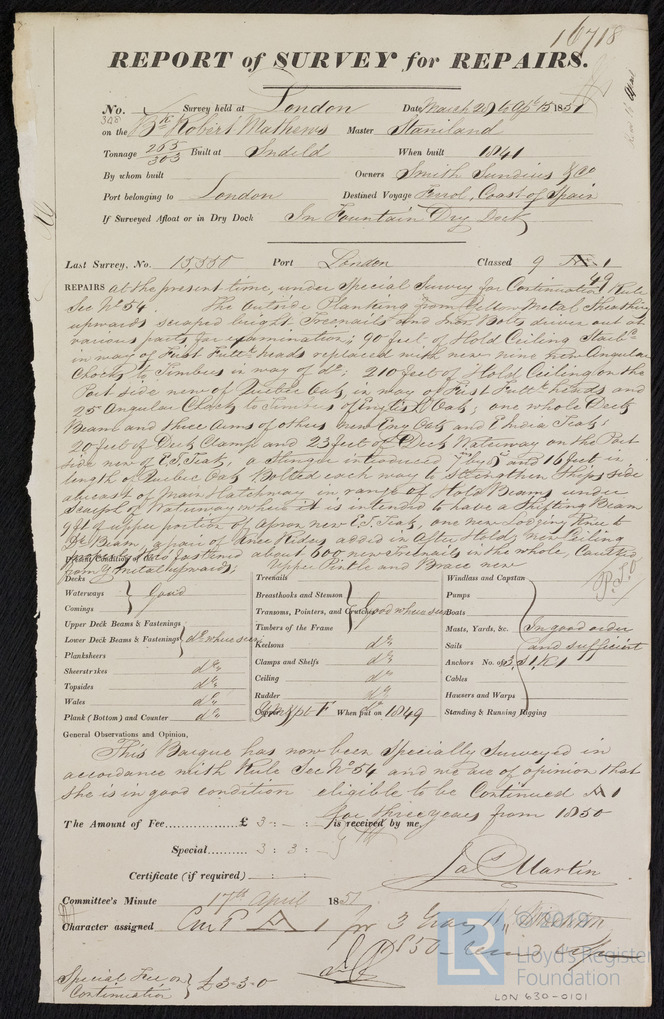 16718
REPORT of SURVEY for REPAIRS.
No. 348 Survey held at London Date March 28 & 6 Apl 15 1851
on the Bk Robert Mathews Master Staniland
Tonnage 265/303 Built at When built 1841
By whom built Owners Smith Sundius & Co
Port belonging to London Destined Voyage Ferrol, Coast of Spain
If Surveyed Afloat or in Dry Dock In Fountain Dry Dock
Last Survey, No. 15,550 Port London Classed 9 A 1
49
REPAIRS at the present time, under Special Survey for Continuation Rule
Sec No 54. The Outside Planking from Yellow Metal Sheathing
upwards scraped bright Treenails and Iron Bolts driven out at
various parts for examination; 90 feet of Hold Ceiling Starbd
in way of First Futtk heads replaced with new nine new Angular
Chocks to Timbers in way of do; 210 feet of Hold Ceiling on the
Port side new of Quebec Oak, in way of First Futtk heads and
25 Angular Chocks to Timbers of English Oak; one whole Deck
Beam and three Arms of others new Eng Oak and E India Teak;
20 feet of Deck Clamp and 23 feet of Deck Waterway on the Port
side new of E.I. Teak, a Stringer introduced 7 by 5 and 16 feet in
length of Quebec Oak Bolted each way to strengthen Ships side
abreast of Main Hatchway in range of Hold Beams under
Scarph of Waterway where it is intended to have a Shifting Beam
9 ft of upper portion of Apron new E.I. Teak, one new Lodging Knee to
Dk Beam, a pair of Knee Riders added in After Hold, new Ceiling
properly Bolt fastened about 600 new Treenails in the whole, Caulked
from Y. Metal upwards; Upper Pintle and Brace new
P.T.O
Present Condition of the
Decks
Waterways } Good
Comings
Upper Deck Beams & Fastenings
Lower Deck Beams & Fastenings } do where seen
Planksheers
Sheerstrakes do
Topsides do
Wales do
Plank (Bottom) and Counter do
Treenails
Breasthooks and Stemson
Transoms, Pointers, and Crutches } Good where seen
Timbers of the Frame
Keelsons do
Clamps and Shelfs do
Ceiling do
Rudder do
Copper YM & pt F When put on 1849
Windlass and Capstan
Pumps
Boats
Masts, Yards, &c. In good order
Sails and sufficient
Anchors No. of 3, S 1, K 1
Cables
Hawsers and Warps
Standing & Running Rigging
General Observations and Opinion,
This Barque has now been Specially Surveyed in
accordance with Rule Sec No 54 and we are of opinion that
she is in good condition eligible to be Continued A 1
for three years from 1850
The Amount of Fee £ 3 : - : is received by me,
Special 3 : 3 : -
Jas Martin
Certificate (if required) : :
Committee's Minute 17th April 1851
Character assigned Cont A 1 for 3 Years
1850
Special Fee on } £3-3-0
Continuation
© 2019
LR
Lloyd's Register
Foundation
LON 630-0101